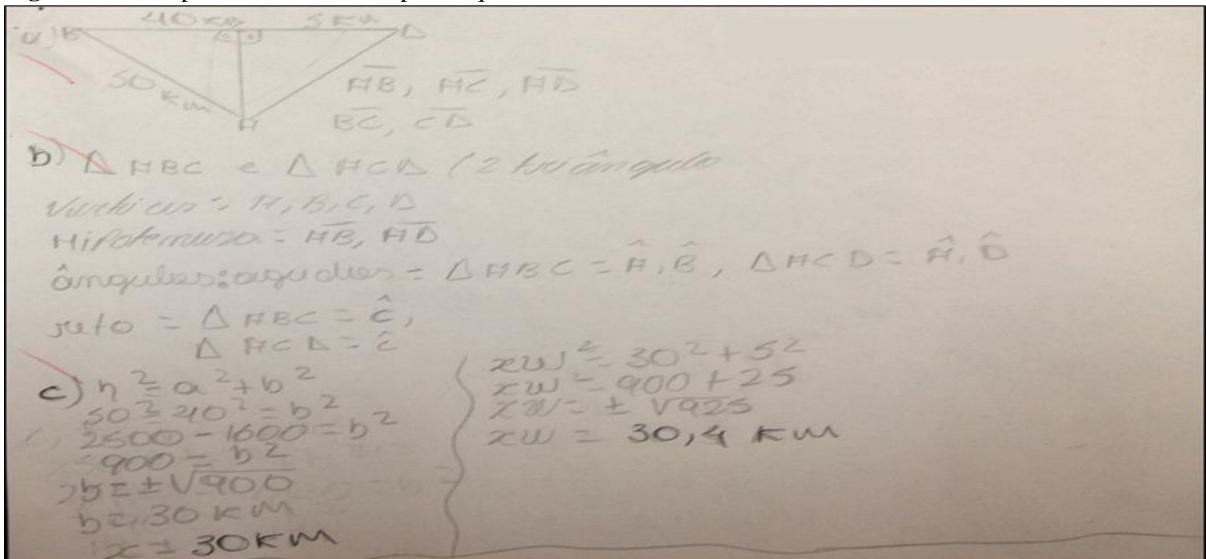 40 km 5 km
a) B D
50 km AB, AC, AD
A BC, CD
b) Δ ABC e Δ ACD (2 triângulo
Vértices = A, B, C, D
Hipotenusa = AB, AD
ângulos: agudos = Δ ABC = Â, B̂, Δ ACD = Â, D̂
reto = Δ ABC = ĉ,
Δ ACD = ĉ
c) h² = a² + b²
50² = 40² = b²
2500 - 1600 = b²
900 = b²
b = ± √900
b = 30 KM
x = 30KM
xw² = 30² + 5²
xw² = 900 + 25
xw = ± √925
xw = 30,4 KM